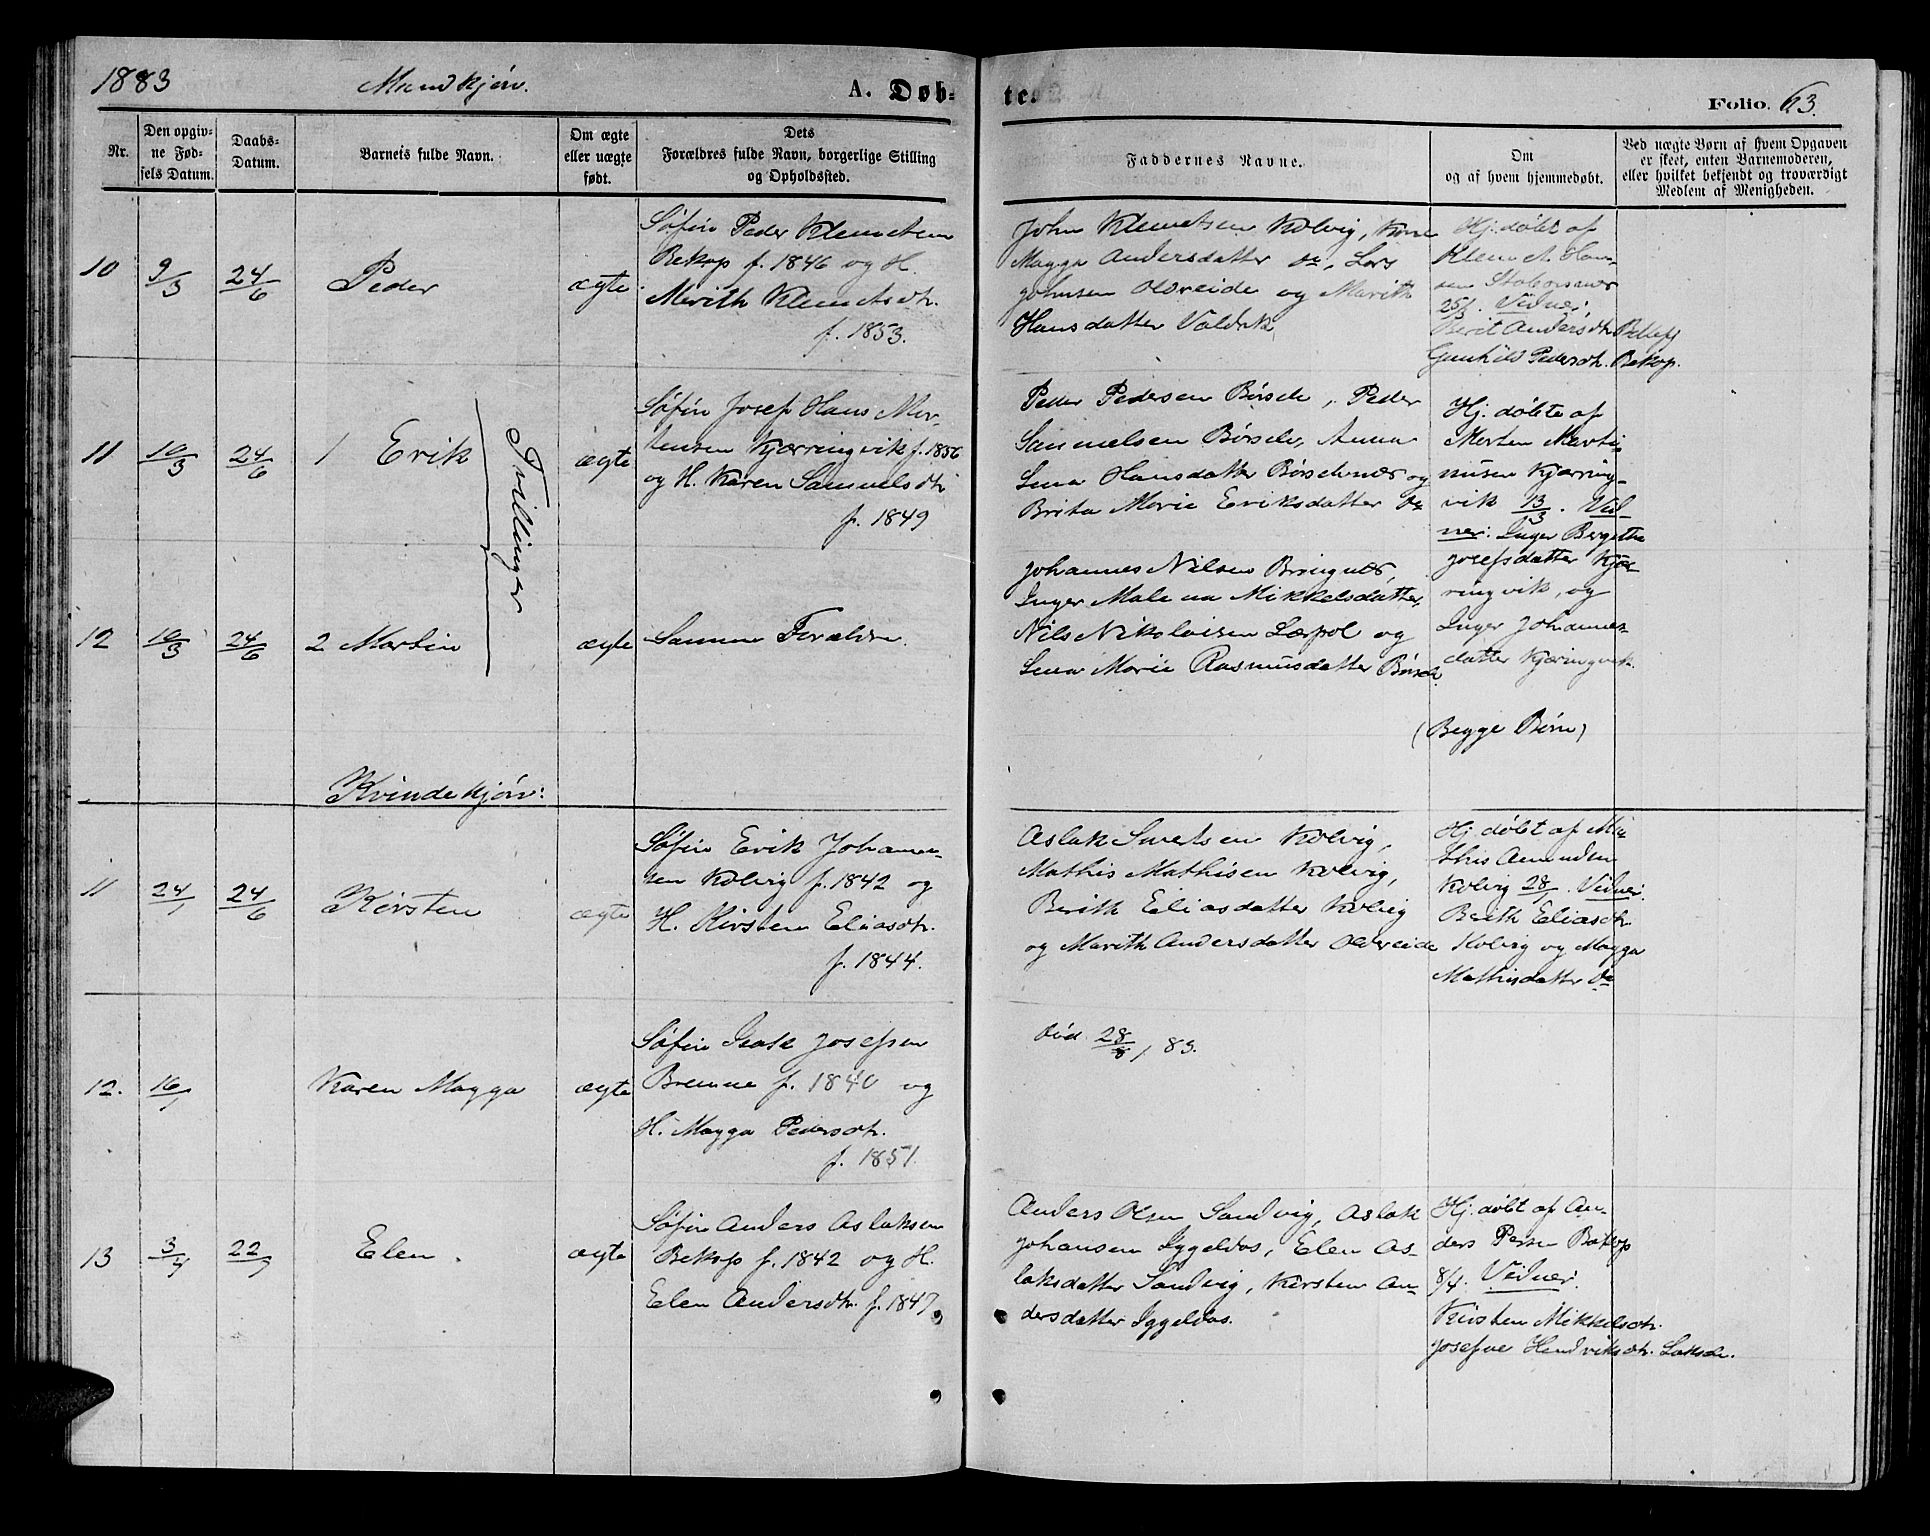 1883 Mandkjøn. A. Døb- te. Folio. 63.
Nr.
Den opgiv-
ne Fød-
sels Datum.
Daabs-
Datum.
Barnets fulde Navn.
Om ægte
eller uægte
født.
Dets
Forældres fulde Navn, borgerlige Stilling
og Opholdssted.
Faddernes Navne.
Om
og af hvem hjemmedøbt.
Ved uægte Børn af hvem Opgaven
er skeet, enten Barnemoderen,
eller hvilket bekjendt og troværdigt
Medlem af Menigheden.
10 9/3 24/6 Peder ægte
Søfin Peder Klemetsen
Bekop f. 1846 og H.
Merith Klemetsdtr.
f. 1853.
John Klemetsen Kolvig, Kone
Magga Andersdatter do, Lars
Johnsen Oldereide og Marith
Hansdatter Valdak
Hj. døbt af
Klemet Han-
sen
25/3. Vidner:
Berit Andersdtr. Bekop
Gunhild Pedersdtr. Bekop.
11 10/3 24/6 1 Erik ægte
Tvillinger
Søfin Josef Hans Mor-
tensen Kjærringvik f. 1856
og H. Karen Samuelsdtr
f. 1849
Peder Pedersen Børsele, Peder
Samuelsen Børsele, Anna
Lena Hansdatter Børselvnær og
Brita Marie Eriksdatter do
Hj. døbte af
Morten Marti-
nusen Kjærring-
vik 13/3. Vid-
ner: Inger Bergetha
Josefsdatter Kjær-
ringvik, og
Inger Johannes-
datter Kjæringvik.
12 10/3 24/6 2 Martin ægte
Samme Forældre.
Johannes Nilsen Bringnes,
Inger Malena Mikkelsdatter,
Nils Nikolaisen Lærpol og
Lena Marie Rasmusdatter Børsel.
(Begge Børn)
Kvindekjøn:
11 24/1 24/6 Kirsten ægte
Søfin Erik Johanne-
sen Kolvig f. 1842 og
H. Kirsten Eliasdtr.
f. 1844.
Aslak Smetsen Kolvig,
Mathis Mathisen Kolvig,
Berith Eliasdatter Kolvig
og Marith Andersdatter Oldereide
Hj. døbt af Ma-
this Amunden
Kolvig 28/1. Vidner:
Berith Eliasdtr.
Kolvig og Magga
Mathisdatter do
12. 16/1 Karen Magga ægte
Søfin Isak Josefsen
Brenne f. 1840 og
H. Magga Pedersdtr.
f. 1851.
død 28/8, 83.
13 3/4 22/7 Elen. ægte
Søfin Anders Aslaksen
Bekop f. 1842 og H.
Elen Andersdtr. f. 1847.
Anders Olsen Sandvig, Aslak
Johansen Iggeldas, Elen As-
laksdatter Sandvig, Kirsten An-
dersdatter Iggeldas.
Hj. døbt af An-
ders Persen Bekop
8/4. Vidner:
Kirsten Mikkelsdtr.
Josefine Hendriksdtr. Lakselv.